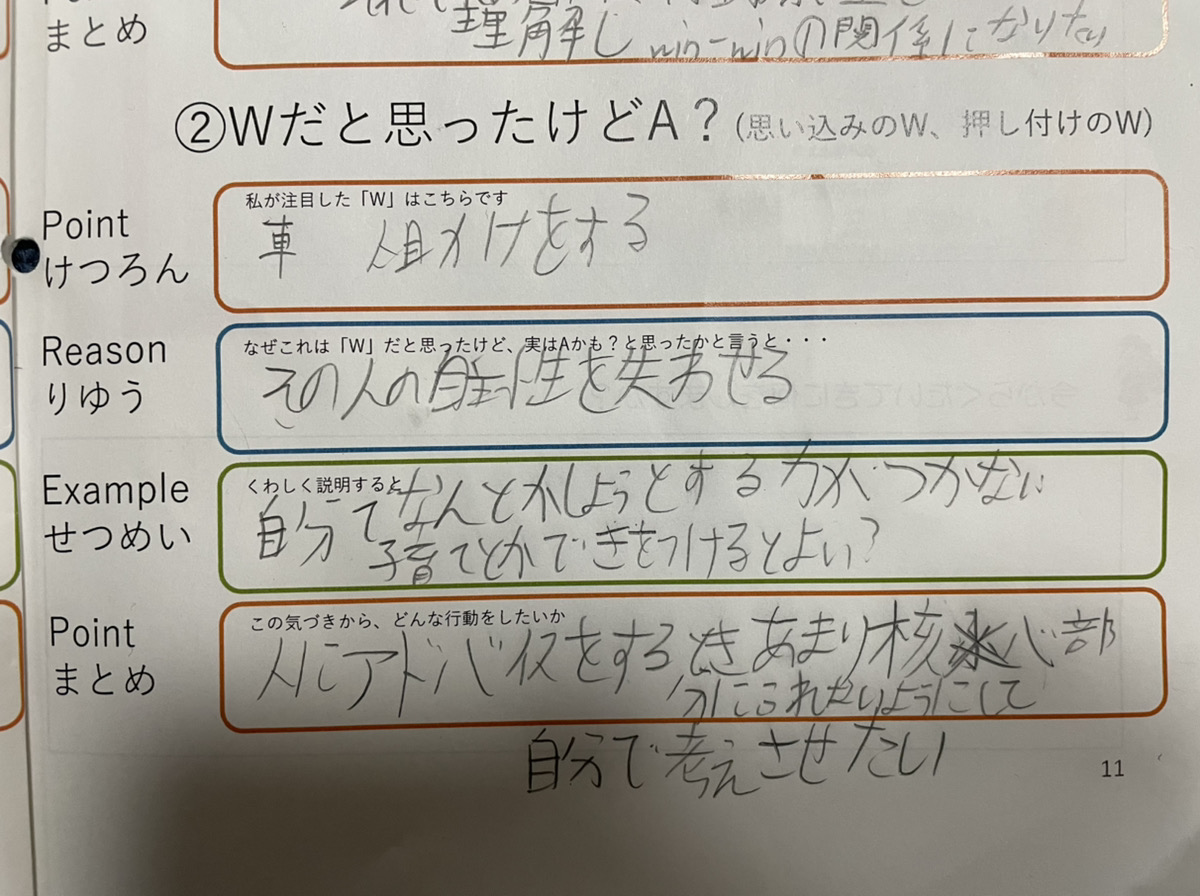 まとめ
理解し win-winの関係になりたい
②Wだと思ったけどA？(思い込みのW、押し付けのW)
Point
けつろん
私が注目した「W」はこちらです
車 人目かけをする
Reason
りゆう
なぜこれは「W」だと思ったけど、実はAかも？と思ったかと言うと・・・
その人の自主性を失わせる
Example
せつめい
くわしく説明すると
自分でなんとかしようとする力がつかない
子育てとかできをつけるとよい?
Point
まとめ
この気づきから、どんな行動をしたいか
人にアドバイスをするときあまり核心部
分にふれないようにして
自分で考えさせたい
11